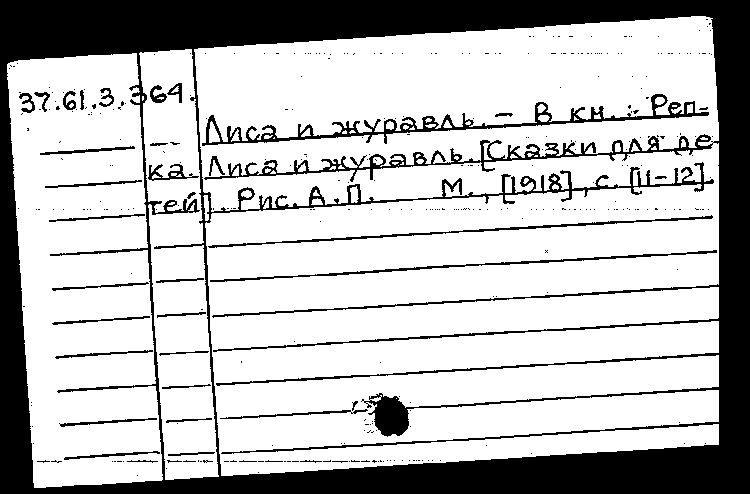 37.61.3.364.
Лиса и журавль. – В кн.: Реп-
ка. Лиса и журавль. [Сказки для де
тей]. Рис. А.П. М., [1918], с. [11-12].